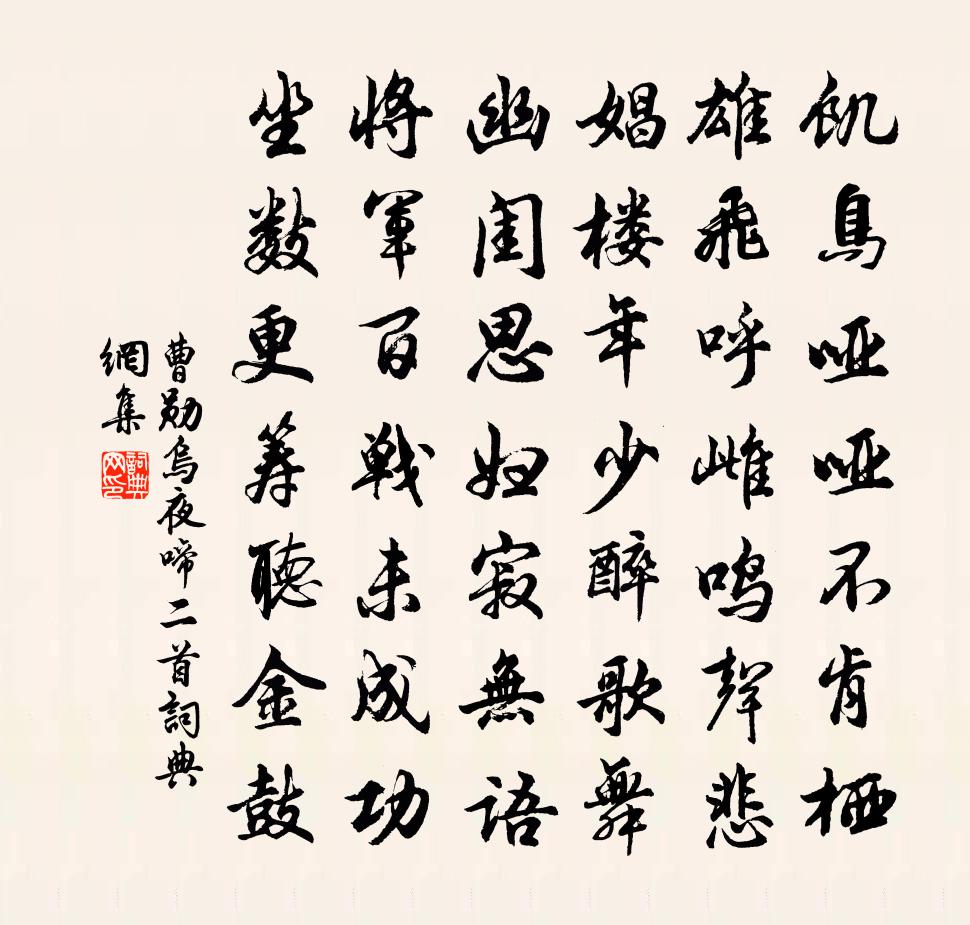 飢鳥啞啞不肯栖
雄飛呼雌鳴聲悲
娼楼年少醉歌舞
幽閨思婦寂無語
將軍百戰未成功
坐數更籌聽金鼓
曹勛烏夜啼二首詞典
網集
詞典